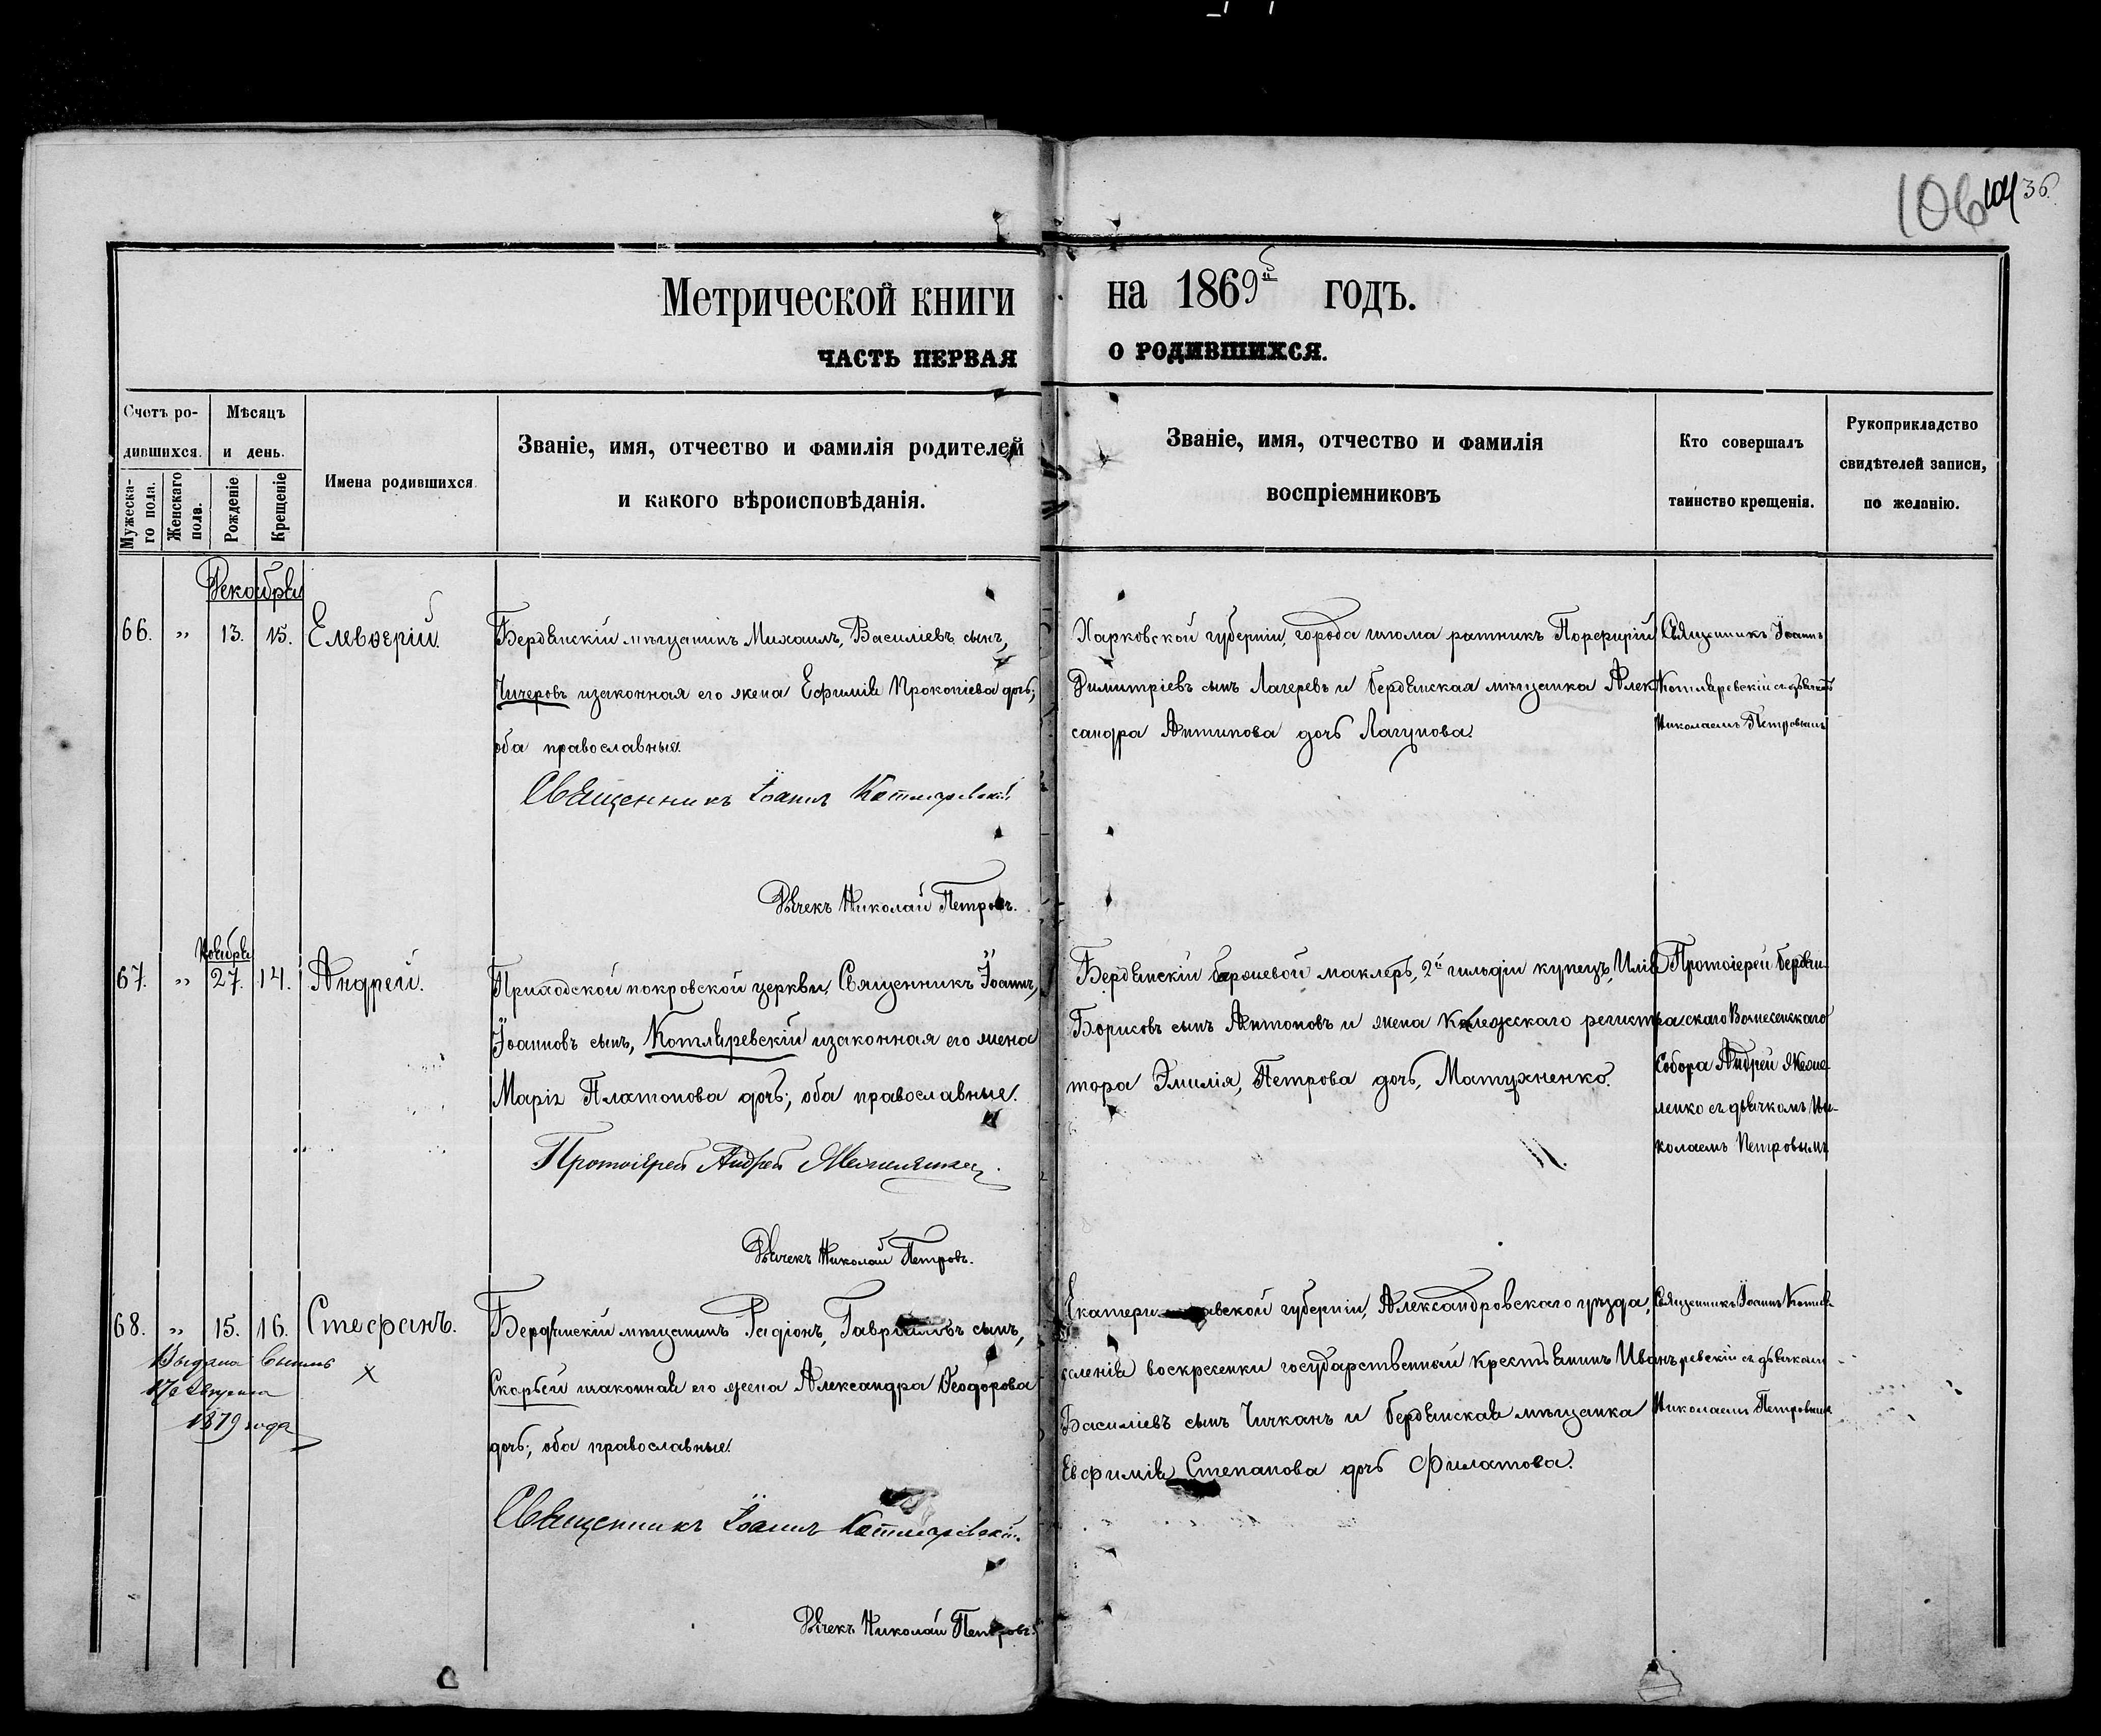 106 104 36.
Метрической книги на 1869й годъ.
ЧАСТЬ ПЕРВАЯ О РОДИВШИХСЯ.
Счетъ ро-
дившихся.
Мужеска-
го пола.
Женскаго
пола.
Мѣсяцъ
и день.
Рожденіе
Крещеніе
Имена родившихся.
Званіе, имя, отчество и фамилія родителей
и какого вѣроисповѣданія.
Званіе, имя, отчество и фамилія
воспріемниковъ
Кто совершалъ
таинство крещенія.
Рукоприкладство
свидѣтелей записи,
по желанію.
Декабря
66. „ 13. 15. Елевѳерій.
Бердянскій мѣщанинъ Михаилъ, Василіевъ сынъ,
Чичеровъ изаконная его жена Ефимія Прокопіева дочь;
оба православные.
Священникъ Іоаннъ Котляревскій
Дьячекъ Николай Петровъ.
Харковской губерніи, города ратникъ Порфирій
Димитріевъ сынъ Лагеревъ и бердянская мѣщанка Алек-
сандра Антипова дочь Лагунова.
Священникъ Іоаннъ
Котляревскій съ дьячкомъ
Николаемъ Петровымъ
Ноября
67. „ 27. 14. Андрей.
Приходской покровской церкви, Священникъ Іоаннъ,
Іоанновъ сынъ, Котляревскій изаконная его жена
Марія Платонова дочь; оба православные.
Протоіерей Андрей
Дьячекъ Николай Петровъ.
Бердянскій биржевой маклеръ, 2й гильдіи купецъ, Илія
Борисовъ сынъ Антоновъ и жена Колежскаго регистра-
тора Эмилія, Петрова дочь, Матухненко.
Протоіерей бердян-
скаго Вознесенскаго
Собора Андрей
ленко съ дьячкомъ Ни-
колаемъ Петровымъ
68. „ 15. 16. Стефанъ.
Выдана
17 Августа
1879 года
X
Бердянскій мѣщанинъ Радіонъ, Гавриловъ сынъ,
Скорбей изаконная его жена Александра Ѳеодорова
дочь; оба православные.
Священникъ Іоаннъ Котляревскій
Дьячекъ Николай Петровъ.
губерніи, Александровскаго уѣзда,
селенія воскресенки государственный крестьянинъ Иванъ
Василіевъ сынъ Чичканъ и бердянская мѣщанка
Евфимія Степанова дочь Филатова.
Священникъ Іоаннъ Котля-
ревскій съ дьячкомъ
Николаемъ Петровымъ